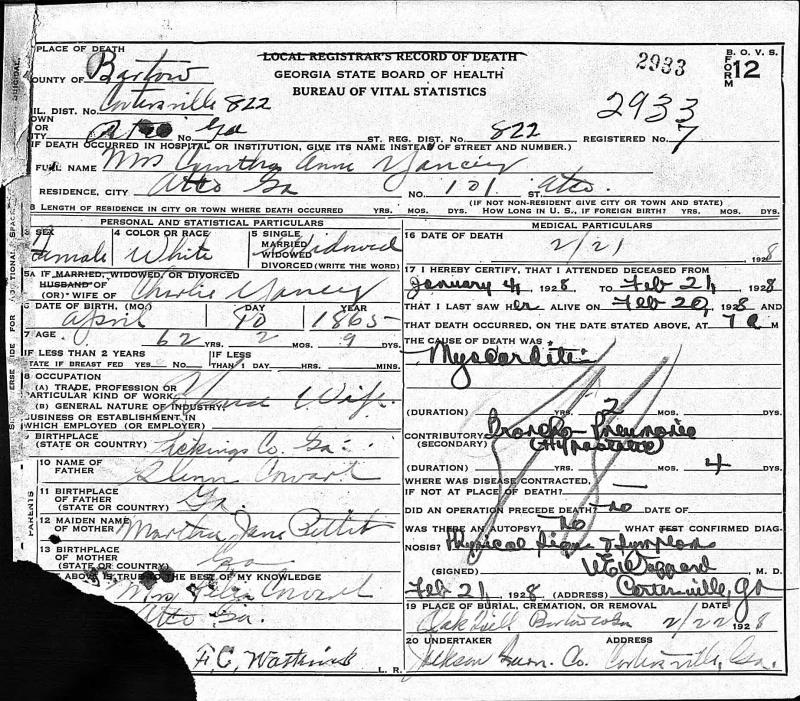 PLACE OF DEATH
COUNTY OF Bartow
MIL. DIST. No. Cartersville 822
TOWN OR CITY Atco Ga No. ST. REG. DIST. No. 822 REGISTERED No. 7
LOCAL REGISTRAR'S RECORD OF DEATH
GEORGIA STATE BOARD OF HEALTH
BUREAU OF VITAL STATISTICS
2933
B. O. V. S.
FORM 12
2933
(IF DEATH OCCURRED IN HOSPITAL OR INSTITUTION, GIVE ITS NAME INSTEAD OF STREET AND NUMBER.)
FULL NAME Mrs Cynthia Anne Yancey
RESIDENCE, CITY Atco Ga NO. 101 ST. Atco.
(IF NOT NON-RESIDENT GIVE CITY OR TOWN AND STATE)
LENGTH OF RESIDENCE IN CITY OR TOWN WHERE DEATH OCCURRED YRS. MOS. DYS. HOW LONG IN U. S., IF FOREIGN BIRTH? YRS. MOS. DYS.
PERSONAL AND STATISTICAL PARTICULARS
3 SEX Female
4 COLOR OR RACE White
5 SINGLE MARRIED WIDOWED DIVORCED (WRITE THE WORD) Widowed
5A IF MARRIED, WIDOWED, OR DIVORCED
HUSBAND OF
(OR) WIFE OF Charlie Yancey
6 DATE OF BIRTH. (MO.) DAY YEAR
April 10 1865
7 AGE 62 YRS. 2 MOS. 9 DYS.
IF LESS THAN 2 YEARS
STATE IF BREAST FED YES. NO.
IF LESS
THAN 1 DAY HRS. MINS.
8 OCCUPATION
(A) TRADE, PROFESSION OR
PARTICULAR KIND OF WORK House Wife
(B) GENERAL NATURE OF INDUSTRY,
BUSINESS OR ESTABLISHMENT IN
WHICH EMPLOYED (OR EMPLOYER)
9 BIRTHPLACE
(STATE OR COUNTRY) Pickings Co. Ga.
PARENTS
10 NAME OF
FATHER Glenn Cowart
11 BIRTHPLACE
OF FATHER
(STATE OR COUNTRY) Ga.
12 MAIDEN NAME
OF MOTHER Martha Jane Pettit
13 BIRTHPLACE
OF MOTHER
(STATE OR COUNTRY) Ga
ABOVE IS TRUE TO THE BEST OF MY KNOWLEDGE
Mrs Cowart
Atco Ga.
F. C. L. R.
MEDICAL PARTICULARS
16 DATE OF DEATH 2/21 1928
17 I HEREBY CERTIFY, THAT I ATTENDED DECEASED FROM
January 4, 1928 TO Feb 21, 1928
THAT I LAST SAW Her ALIVE ON Feb 20, 1928 AND
THAT DEATH OCCURRED, ON THE DATE STATED ABOVE, AT 7 a M
THE CAUSE OF DEATH WAS
Myocarditis
(DURATION) YRS. 2 MOS. DYS.
CONTRIBUTORY Broncho-Pneumonia
(SECONDARY) (Hypostatic)
(DURATION) YRS. MOS. 4 DYS.
WHERE WAS DISEASE CONTRACTED,
IF NOT AT PLACE OF DEATH?
DID AN OPERATION PRECEDE DEATH? no DATE OF
WAS THERE AN AUTOPSY? no WHAT TEST CONFIRMED DIAG-
NOSIS? Physical signs & symptoms
(SIGNED) M. D.
Feb 21, 1928 (ADDRESS) Cartersville, Ga
19 PLACE OF BURIAL, CREMATION, OR REMOVAL DATE
Oak Hill Bartow Co Ga 2/22 1928
20 UNDERTAKER ADDRESS
Jackson Furn. Co. Cartersville, Ga.